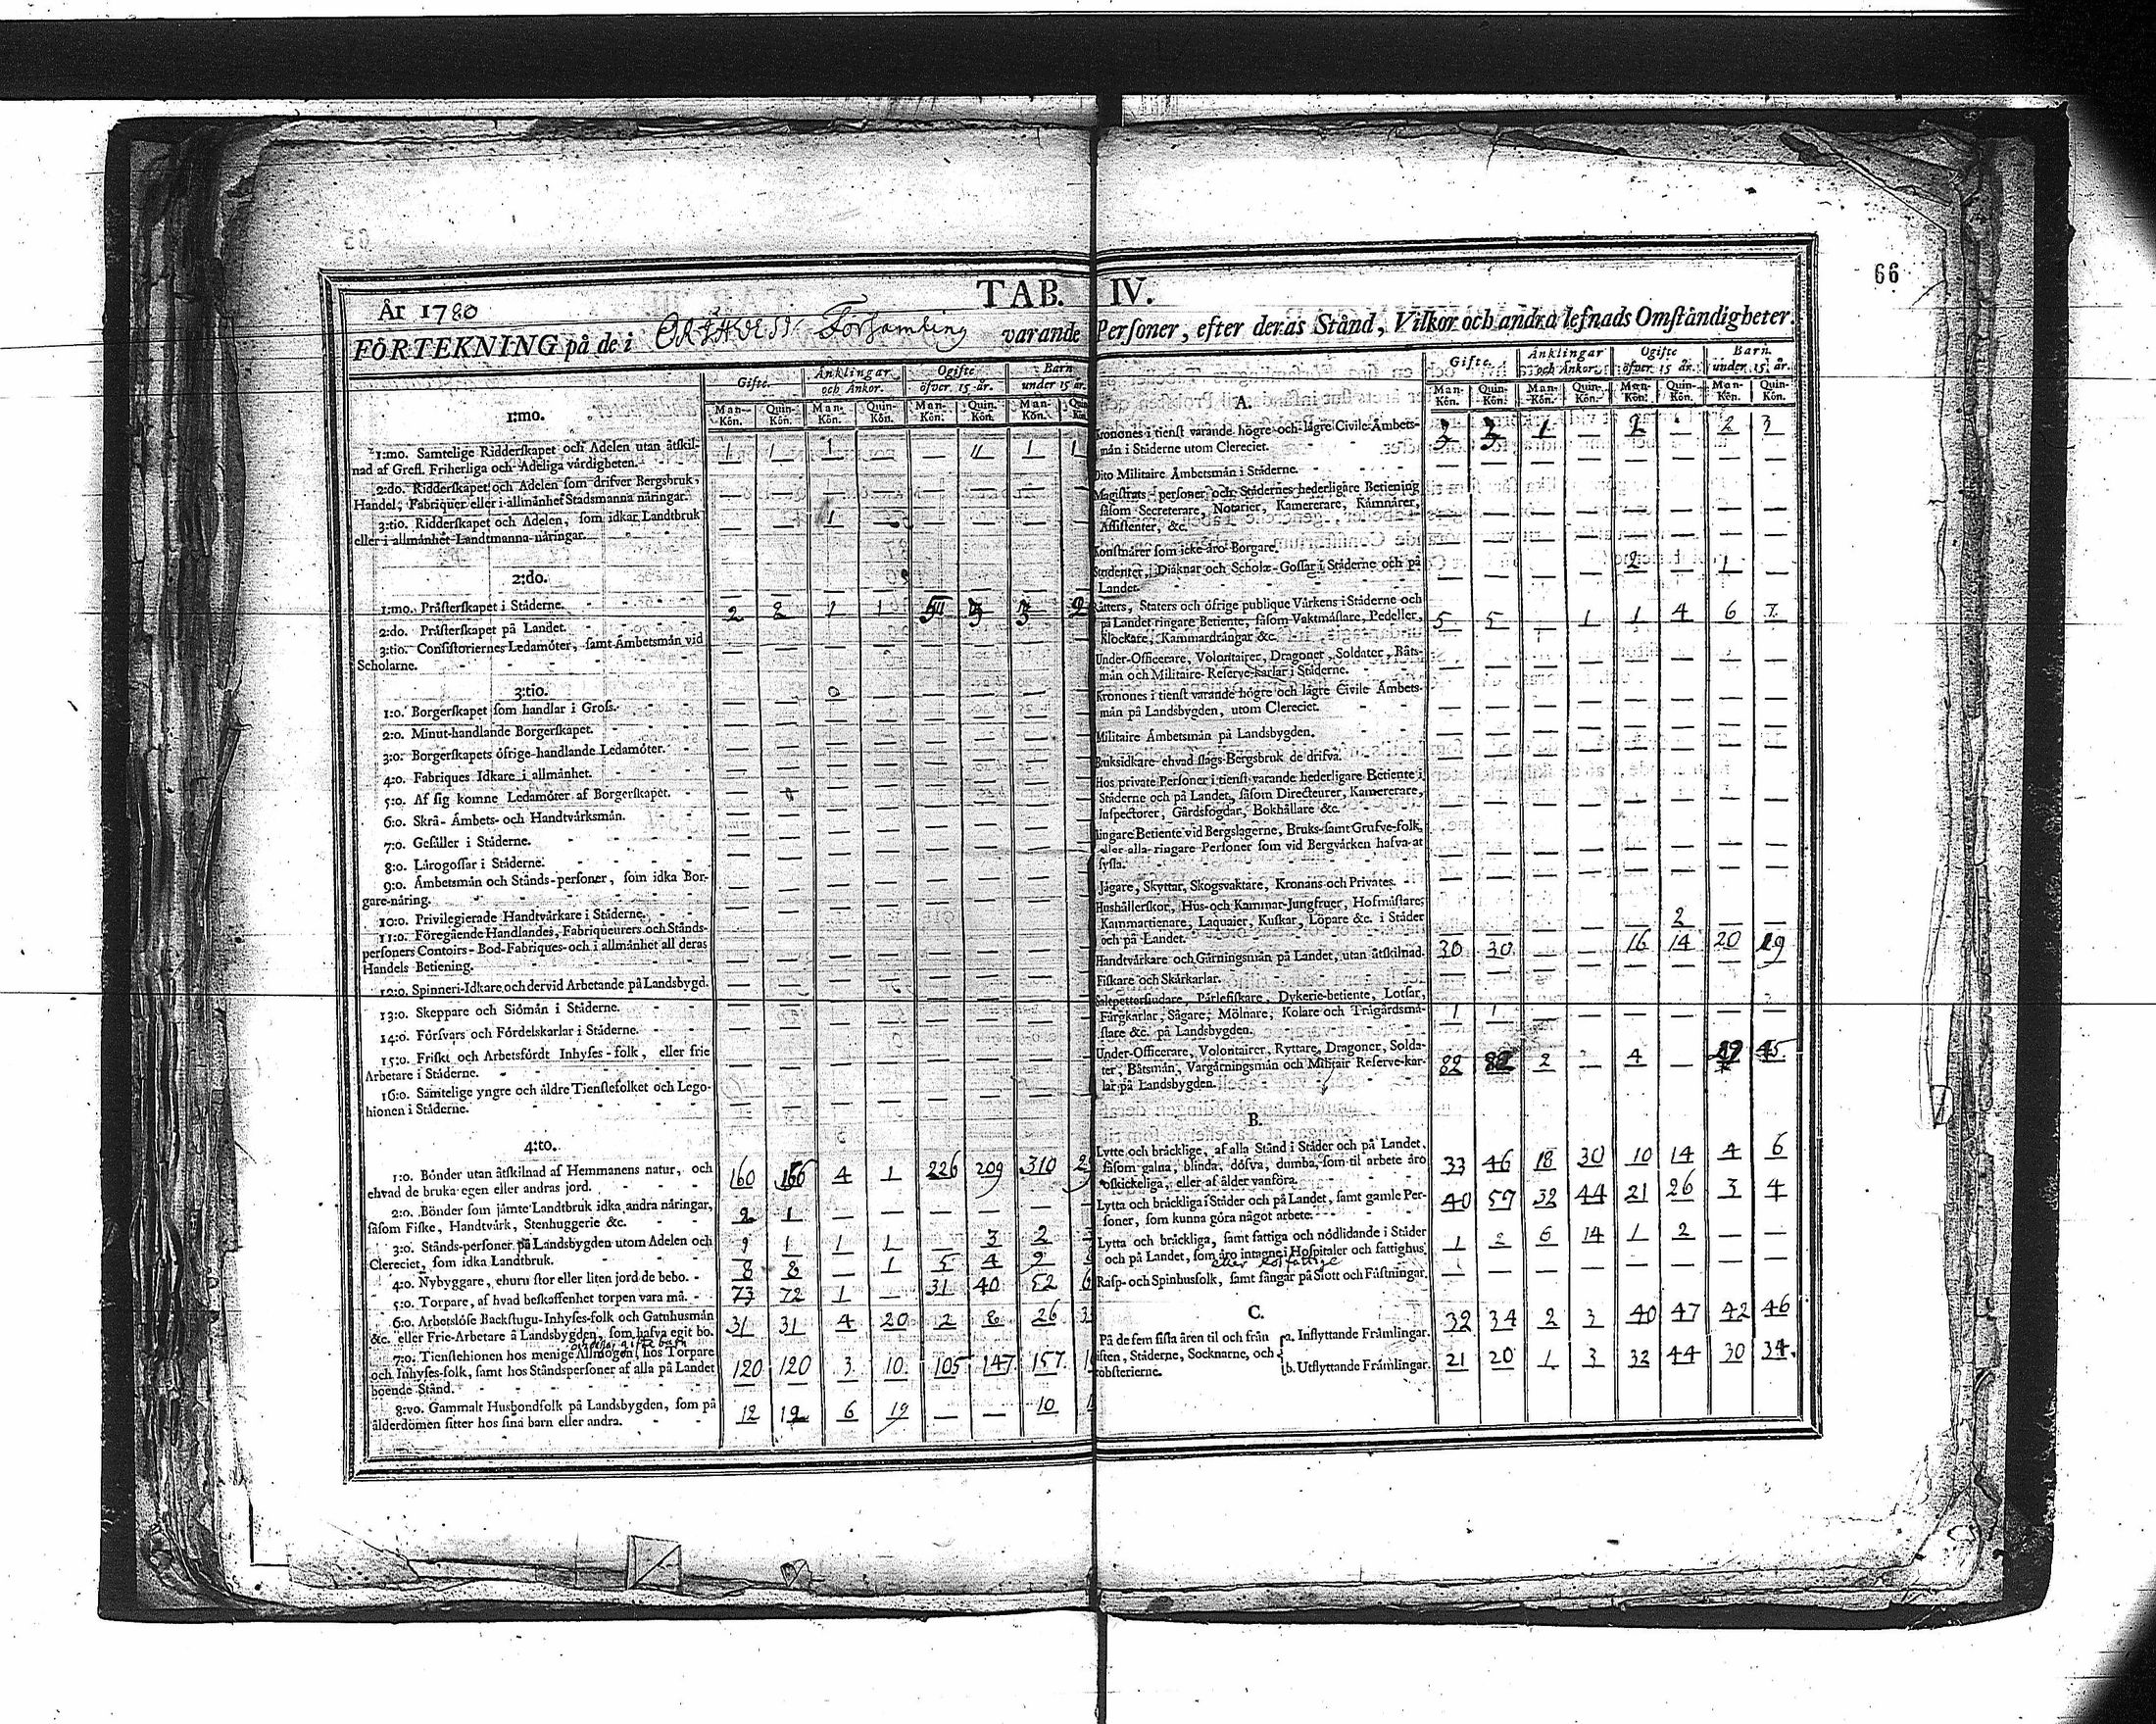 66
TAB. IV.
År 1780
FÖRTEKNING på de i Församling varande Personer, efter deras Stånd, Vilkor och andra lefnads Omständigheter.
Gifte. Änklingar och Änkor. Ogifte öfver 15 år. Barn under 15 år.
Man-Kön. Quin-Kön. Man-Kön. Quin-Kön. Man-Kön. Quin-Kön. Man-Kön. Quin-Kön.
1:mo.
1:mo. Samtelige Ridderskapet och Adelen utan åtskil-
nad af Grefl. Friherliga och Adeliga värdigheten. 1 1 1 — — 11 1 1
2:do. Ridderskapet och Adelen som drifver Bergsbruk,
Handel, Fabriquer eller i allmänhet Stadsmanna näringar.
3:tio. Ridderskapet och Adelen, som idkar Landtbruk
eller i allmänhet Landtmanna-näringar. — — 1 —
2:do.
1:mo. Prästerskapet i Städerne.
2:do. Prästerskapet på Landet.
3:tio. Consistoriernes Ledamöter, samt Ämbetsmän vid
Scholarne.
3:tio.
1:o. Borgerskapet som handlar i Gross.
2:o. Minut-handlande Borgerskapet.
3:o. Borgerskapets öfrige handlande Ledamöter.
4:o. Fabriques Idkare i allmänhet.
5:o. Af sig komne Ledamöter af Borgerskapet.
6:o. Skrå-Ämbets- och Handtvärksmän.
7:o. Gesäller i Städerne.
8:o. Lärogossar i Städerne.
9:o. Ämbetsmän och Stånds-personer, som idka Bor-
gare-näring.
10:o. Privilegierade Handtvärkare i Städerne.
11:o. Föregående Handlandes, Fabriqueurers och Stånds-
personers Contoirs-Bod-Fabriques-och i allmänhet all deras
Handels Betiening.
12:o. Spinneri-Idkare och dervid Arbetande på Landsbygd.
13:o. Skeppare och Siömän i Städerne.
14:o. Försvars och Fördelskarlar i Städerne.
15:o. Friskt och Arbetsfördt Inhyses-folk, eller frie
Arbetare i Städerne.
16:o. Samtelige yngre och äldre Tienstefolket och Lego-
hionen i Städerne.
4:to.
1:o. Bönder utan åtskilnad af Hemmanens natur, och
ehvad de bruka egen eller andras jord. 160 166 4 1 226 209 310
2:o. Bönder som jämte Landtbruk idka andra näringar,
såsom Fiske, Handtvärk, Stenhuggerie &c. 2 1 — — — — —
3:o. Stånds-personer på Landsbygden utom Adelen och
Clereciet, som idka Landtbruk. 1 1 1 — 3 2
4:o. Nybyggare, ehuru stor eller liten jord de bebo. 8 8 — 1 5 4 9
5:o. Torpare, af hvad beskaffenhet torpen vara må. 73 72 1 — 31 40 52
6:o. Arbetslöse Backstugu-Inhyses-folk och Gatuhusmän
&c. eller Frie-Arbetare å Landsbygden, som hafva egit bo. 31 31 4 20 2 8 26
7:o. Tienstehionen hos menige Allmogen, hos Torpare
och Inhyses-folk, samt hos Ståndspersoner af alla på Landet
boende Stånd. 120 120 3 10 105 147 157
8:vo. Gammalt Husbondfolk på Landsbygden, som på
ålderdomen sitter hos sina barn eller andra. 12 19 6 19 — — 10
Gifte. Änklingar och Änkor. Ogifte öfver 15 år. Barn under 15 år.
Man-Kön. Quin-Kön. Man-Kön. Quin-Kön. Man-Kön. Quin-Kön. Man-Kön. Quin-Kön.
A.
Kronones i tienst varande högre och lägre Civile Ämbets-
män i Städerne utom Clereciet. 1 — 2 3
Dito Militaire Ämbetsmän i Städerne.
Magistrats-personer och Städernes hederligare Betiening
såsom Secreterare, Notarier, Kamererare, Kämnärer,
Assistenter, &c.
Konstnärer som icke äro Borgare.
Studenter, Diäknar och Scholæ-Gossar i Städerne och på
Landet. — — — — 2 — 1 —
Rätters, Staters och öfrige publique Värkens i Städerne och
på Landet ringare Betiente, såsom Vaktmästare, Pedeller,
Klockare, Kammardrängar &c. 5 5 — 1 1 4 6 7
Under-Officerare, Volontairer, Dragoner, Soldater, Båts-
män och Militaire-Reserve-karlar i Städerne.
Kronones i tienst varande högre och lägre Civile Ämbets-
män på Landsbygden, utom Clereciet.
Militaire Ämbetsmän på Landsbygden.
Bruksidkare ehvad slags Bergsbruk de drifva.
Hos private Personer i tienst varande hederligare Betiente i
Städerne och på Landet, såsom Directeurer, Kamererare,
Inspectorer, Gårdsfogdar, Bokhållare &c.
Ringare Betiente vid Bergslagerne, Bruks-samt Grufve-folk,
eller alla ringare Personer som vid Bergvärken hafva at
sysla.
Jägare, Skyttar, Skogsvaktare, Kronans och Privates.
Hushållerskor, Hus-och Kammar-Jungfruer, Hofmästare,
Kammartienare, Laquaier, Kuskar, Löpare &c. i Städer
och på Landet. 2 — —
Handtvärkare och Gärningsmän på Landet, utan åtskilnad. 30 30 — — 16 14 20 19
Fiskare och Skärkarlar.
Saltpettersiudare, Pärlefiskare, Dykerie-betiente, Lotsar,
Färgkarlar, Sågare, Mölnare, Kolare och Trägårdsmä-
stare &c. på Landsbygden. 1 1
Under-Officerare, Volontairer, Ryttare, Dragoner, Solda-
ter, Båtsmän, Vargärningsmän och Militair Reserve-kar-
lar på Landsbygden. 82 82 2 — 4 — 45
B.
Lytte och bräcklige, af alla Stånd i Städer och på Landet,
såsom galna, blinda, döfva, dumba, som til arbete äro
oskickeliga, eller af ålder vanföra. 33 46 18 30 10 14 4 6
Lytta och bräckliga i Städer och på Landet, samt gamle Per-
soner, som kunna göra något arbete. 40 57 32 44 21 26 3 4
Lytta och bräckliga, samt fattiga och nödlidande i Städer
och på Landet, som äro intagne i Hospitaler och fattighus. 1 2 6 14 1 2 — —
Rasp- och Spinhusfolk, samt fångar på Slott och Fästningar.
C.
På de fem sista åren til och från
Städerne, Socknarne, och
a. Inflyttande Främlingar. 32 34 2 3 40 47 42 46
b. Utflyttande Främlingar. 21 20 1 3 32 44 30 34.